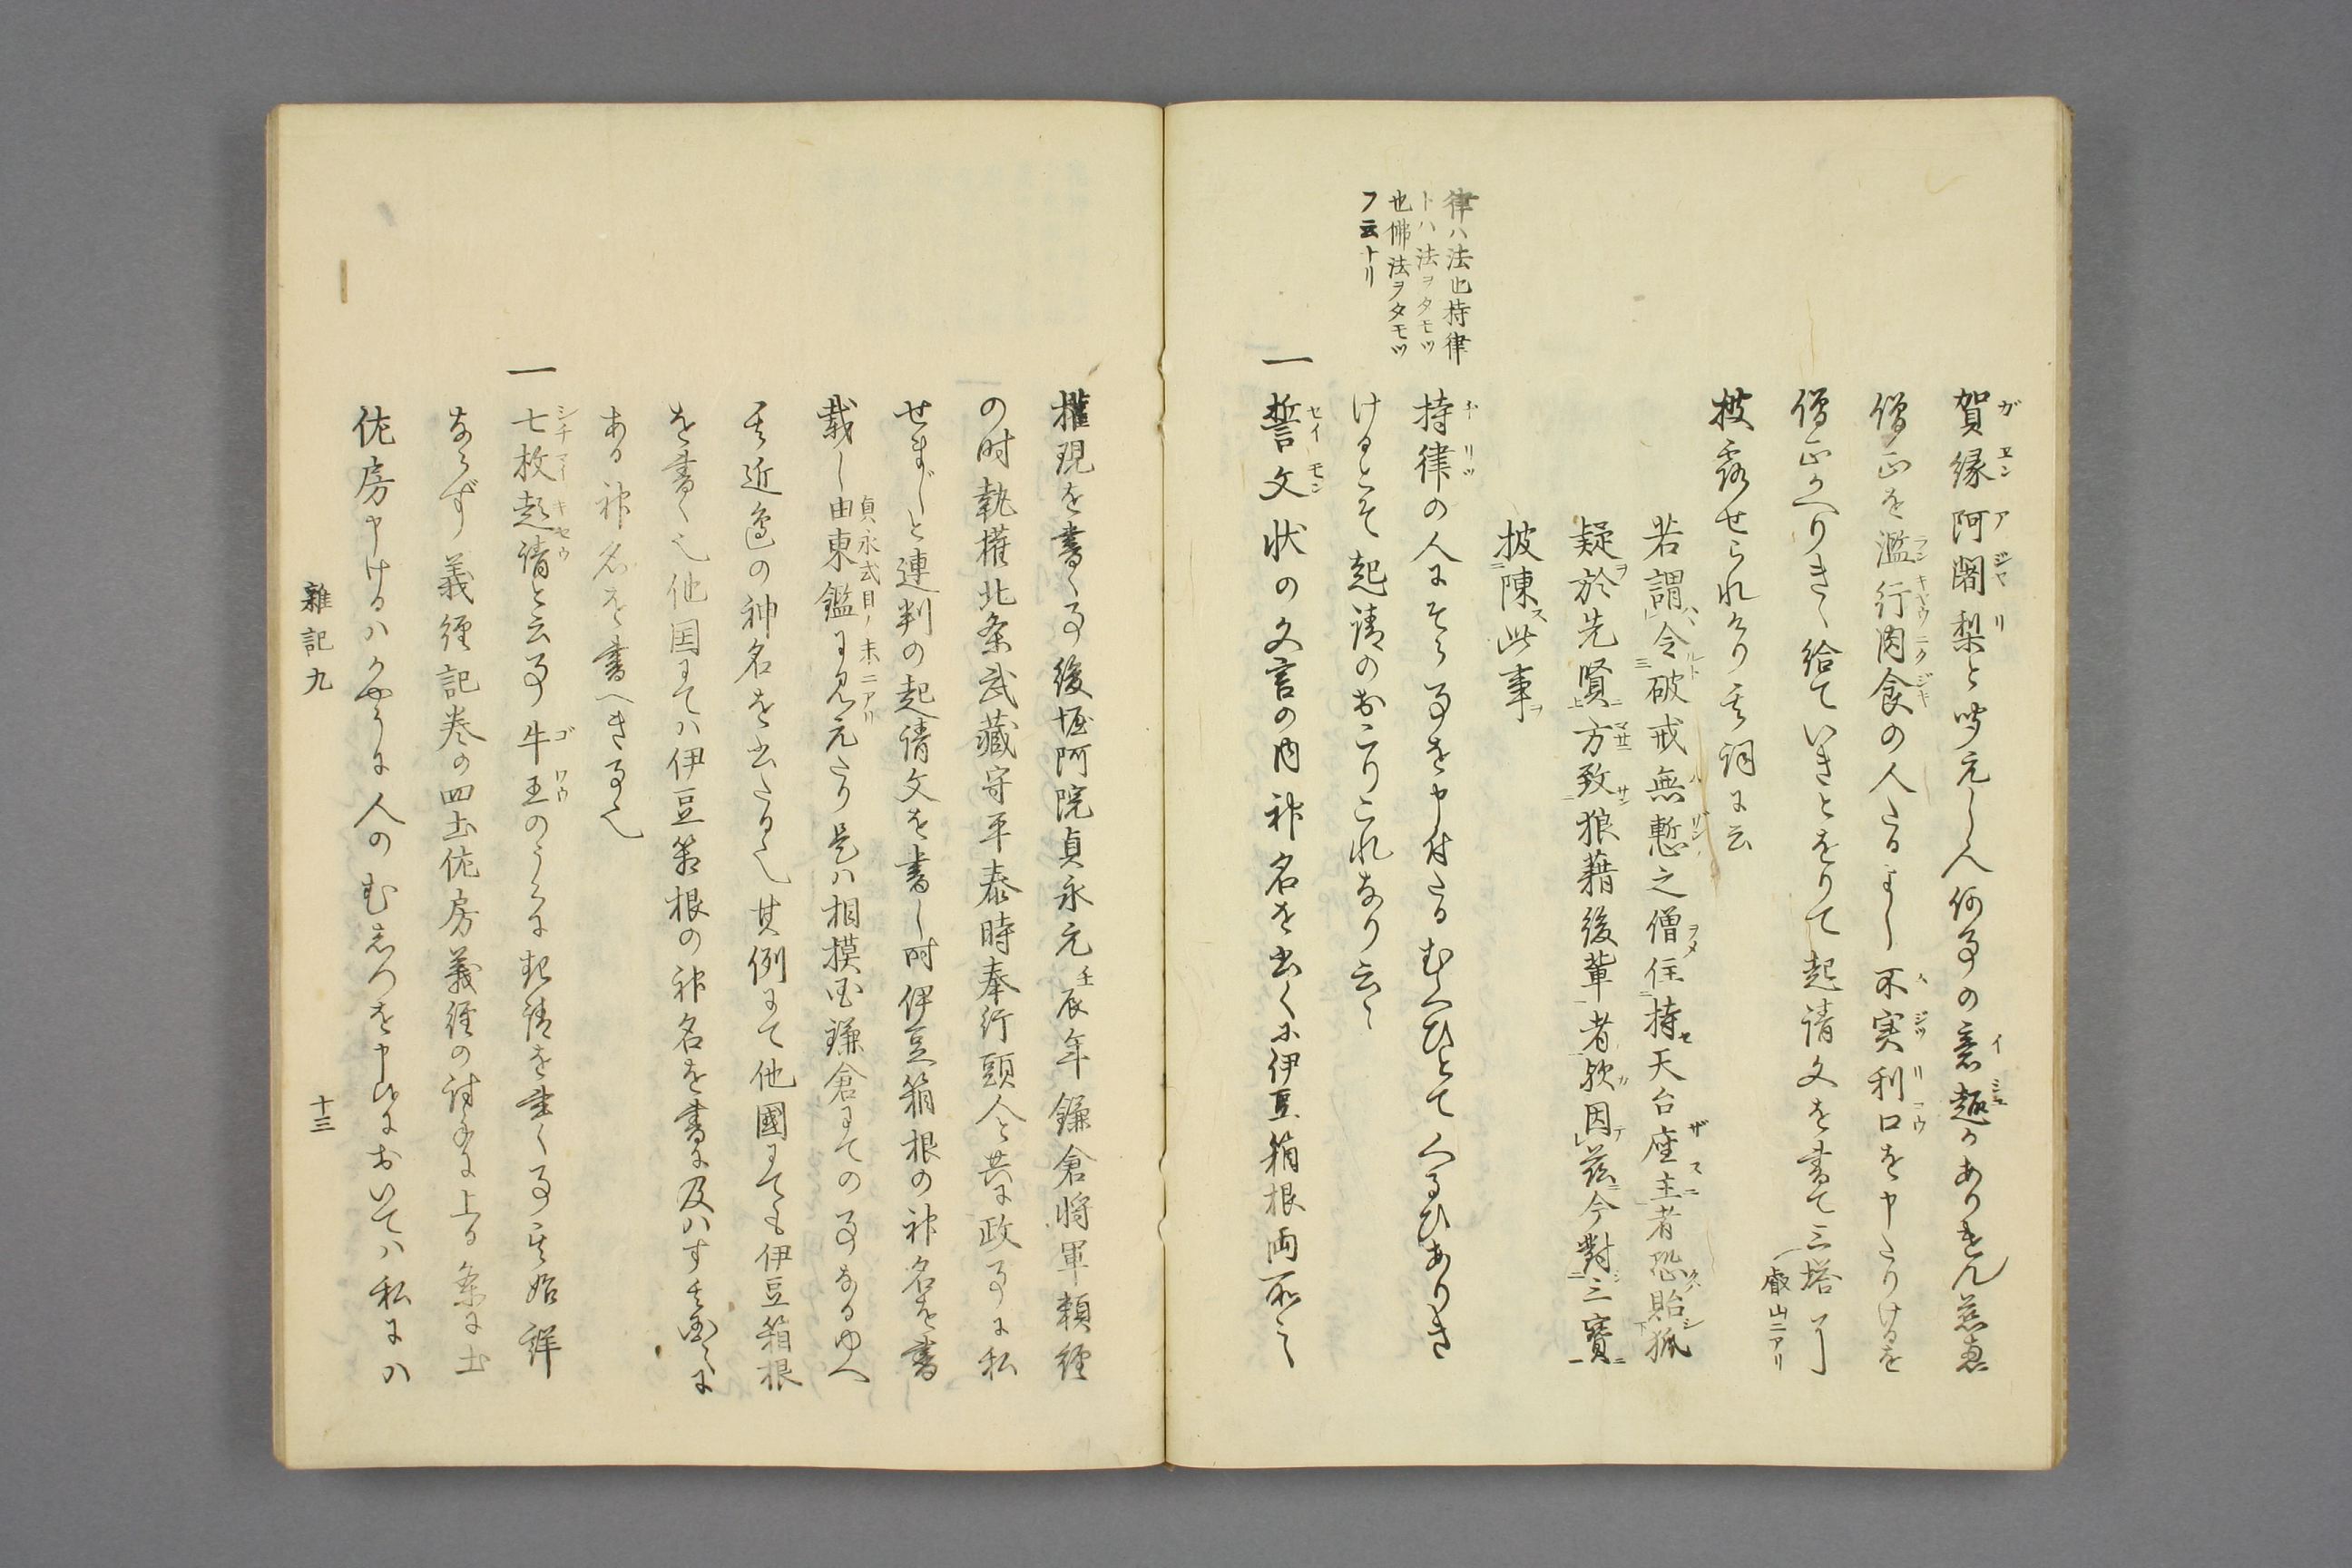 賀縁阿闍梨と聞えし人何事の意趣かありけん慈恵
僧正を濫行肉食の人たるよし不実利口を申たりけるを
僧正かへりきゝ給ていきとをりて起請文を書て三塔に
叡山ニアリ
披露せられけり其詞に云
若謂令破戒無慙之僧住持天台座主者恐貽狐
疑於先賢方致狼藉後輩者欤因茲今對三寶
披陳此事
律ハ法也持律
トハ法ヲタモツ
也佛法ヲタモツ
フ云トリ
持律の人にそら事を申付たるむくひとて
けるとそ起請のおこりこれなり云々
一 誓文状の文言の内神名を出くに伊豆箱根両所之
權現を書く事後堀阿院貞永元壬辰年鎌倉將軍頼経
の时執権北条武藏守平泰時奉行頭人と共に政事に私
せまじと連判の起請文を書し时伊豆箱根の神名を書
載し由東鑑に見元たり是ハ相摸国鎌倉にての事なるゆへ
貞永式目ノ末ニアリ
其近邊の神名を出たる也其例にて他國にても伊豆箱根
を書く也他国にてハ伊豆箱根の神名を書に及ハす其國々に
ある神名を書へき事也
一 七枚起請と云事牛王のうらに起請を書く事其始詳
ならず義経記巻の四土佐房義経の討手に上る条に土
佐房申けるハかやうに人のむしつを申候においてハ私にハ
雑記九
十三